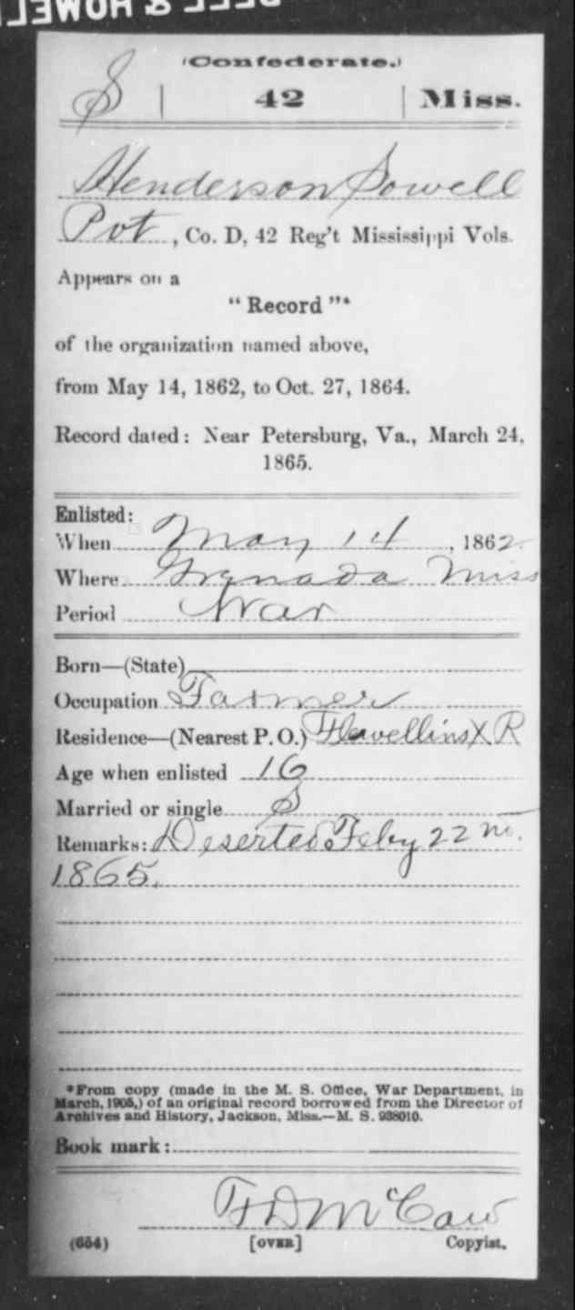 BELL & HOWELL
(Confederate.)
S | 42 | Miss.
Henderson Sowell
Pvt, Co. D, 42 Reg't Mississippi Vols.
Appears on a
"Record"*
of the organization named above,
from May 14, 1862, to Oct. 27, 1864.
Record dated: Near Petersburg, Va., March 24,
1865.
Enlisted:
When May 14, 1862
Where Grenada Miss
Period War
Born—(State)
Occupation Farmer
Residence—(Nearest P.O.) X R
Age when enlisted 16
Married or single S
Remarks: Deserted Feby 22nd.
1865.
*From copy (made in the M. S. Office, War Department, in
March, 1905,) of an original record borrowed from the Director of
Archives and History, Jackson, Miss.—M. S. 938010.
Book mark:
F D McCaw
(654) [OVER] Copyist.